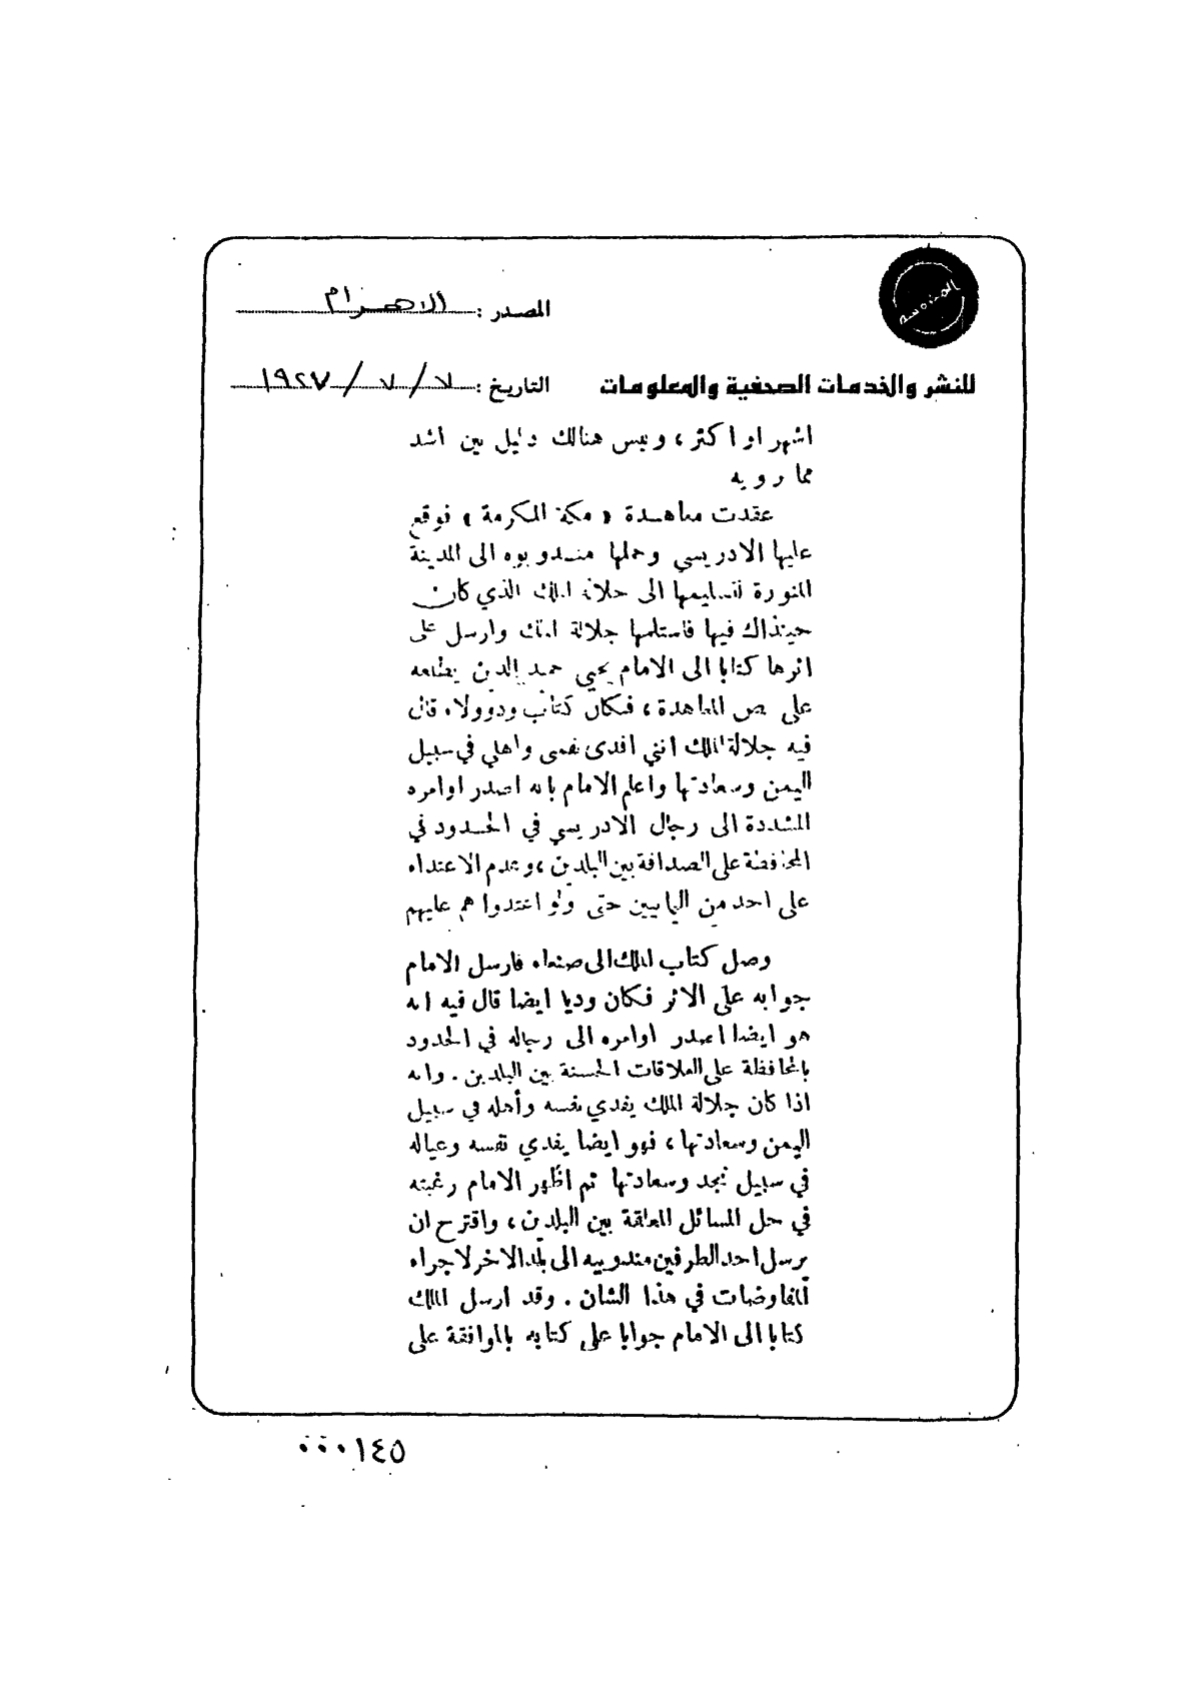 المصدر : الاهرام
للنشر والخدمات الصحفية والمعلومات
التاريخ : ٧ / ٧ / ١٩٢٧
اشهر او اكثر ، وليس هنالك دليل بين اشد
مما رويه
عقدت معاهدة « مكة المكرمة » فوقع
عليها الادريسي وحملها مندوبوه الى المدينة
المنورة لتسليمها الى جلالة الملك الذي كان
حينذاك فيها فاستلمها جلالة الملك وارسل على
اثرها كتابا الى الامام يحيى حميد الدين يطلعه
على نص المعاهدة ، فكان كتاب ودوولاء قال
فيه جلالة الملك انني افدى نفسى واهلي في سبيل
اليمن وسعادتها واعلم الامام بانه اصدر اوامره
المشددة الى رجال الادريسي في الحدود في
المحافظة على الصداقة بين البلدين ، وعدم الاعتداء
على احد من اليمانيين حتى ولو اعتدوا هم عليهم
وصل كتاب الملك الى صنعاء فارسل الامام
جوابه على الاثر فكان وديا ايضا قال فيه انه
هو ايضا اصدر اوامره الى رجاله في الحدود
بالمحافظة على العلاقات الحسنة بين البلدين . وانه
اذا كان جلالة الملك يفدي نفسه وأهله في سبيل
اليمن وسعادتها ، فهو ايضا يفدي نفسه وعياله
في سبيل نجد وسعادتها ثم اظهر الامام رغبته
في حل المسائل المعلقة بين البلدين ، واقترح ان
يرسل احد الطرفين مندوبيه الى بلد الاخر لاجراء
المفاوضات في هذا الشان . وقد ارسل الملك
كتابا الى الامام جوابا على كتابه بالموافقة على
٠٠٠١٤٥